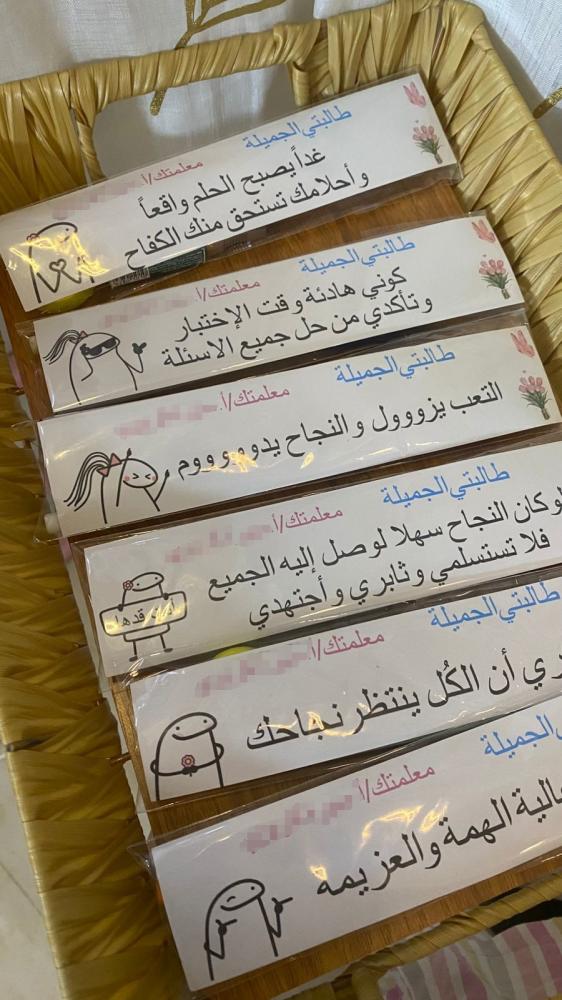 طالبتي الجميلة
غداً يصبح الحلم واقعاً
و أحلامك تستحق منك الكفاح
معلمتك/أ.
طالبتي الجميلة
كوني هادئة وقت الإختبار
و تأكدي من حل جميع الاسئلة
معلمتك/أ.
طالبتي الجميلة
التعب يزوووول و النجاح يدوووووم
معلمتك/أ.
طالبتي الجميلة
لو كان النجاح سهلا لوصل إليه الجميع
فلا تستسلمي و ثابري و أجتهدي
معلمتك/أ.
قدها
طالبتي الجميلة
أن الكُل ينتظر نجاحك
معلمتك/أ.
الجميلة
الهمة والعزيمه
معلمتك/أ